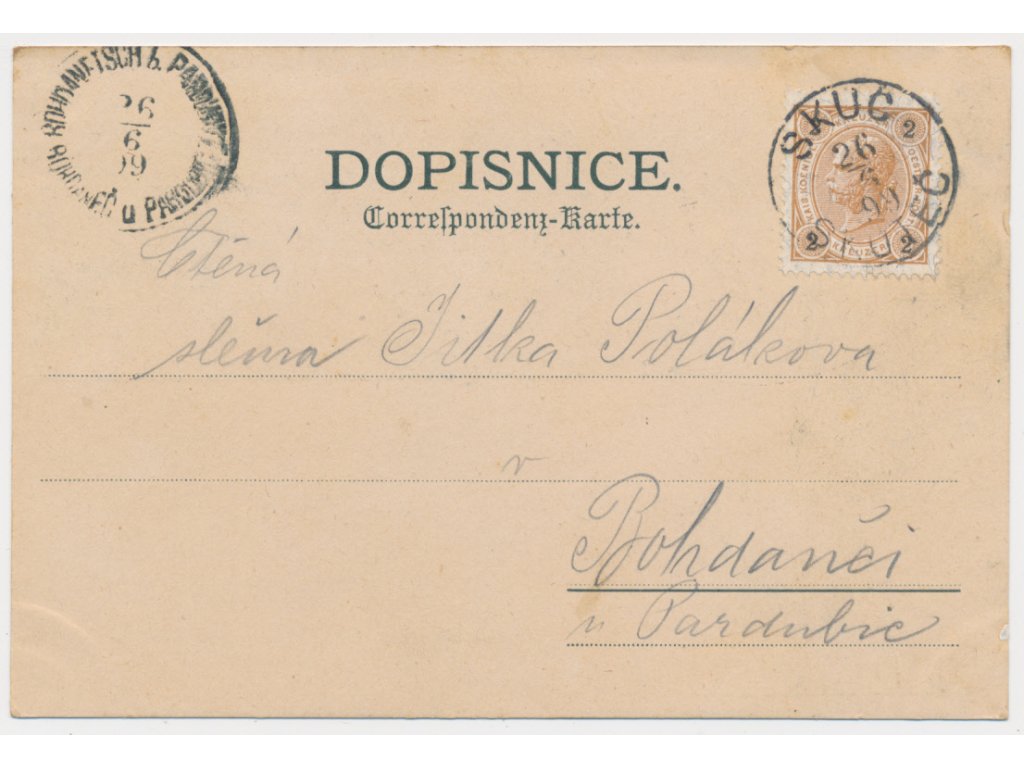 BOHDANETSCH b. PARDUBITZ
26
6
99
BOHDANEČ u PARDUBIC
SKUČ
26
6
99
SKUTEČ
2
2
2
2
KREUZER
DOPISNICE.
Correſpondenz-Karte.
Ctěná
slečna Jitka Polákova
v
Bohdanči
u Pardubic